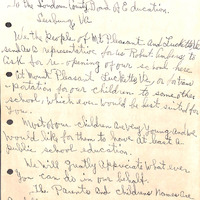 To the Loudoun County Board of Education.
Leesburg Va
We the people of Mt Pleasant and Lucketts Va
send as a representative for us Robert
ask for re-opening of our school here
at Mount Pleasant Lucketts Va, or transportation
portation for our children to some other
school, which ever would be best suited for
you.
Most of our children are very young and we
would like for them to have at least a
public school education.
We will greatly appreciate what ever
you can do in our behalf.
The Parents and childrens Names are